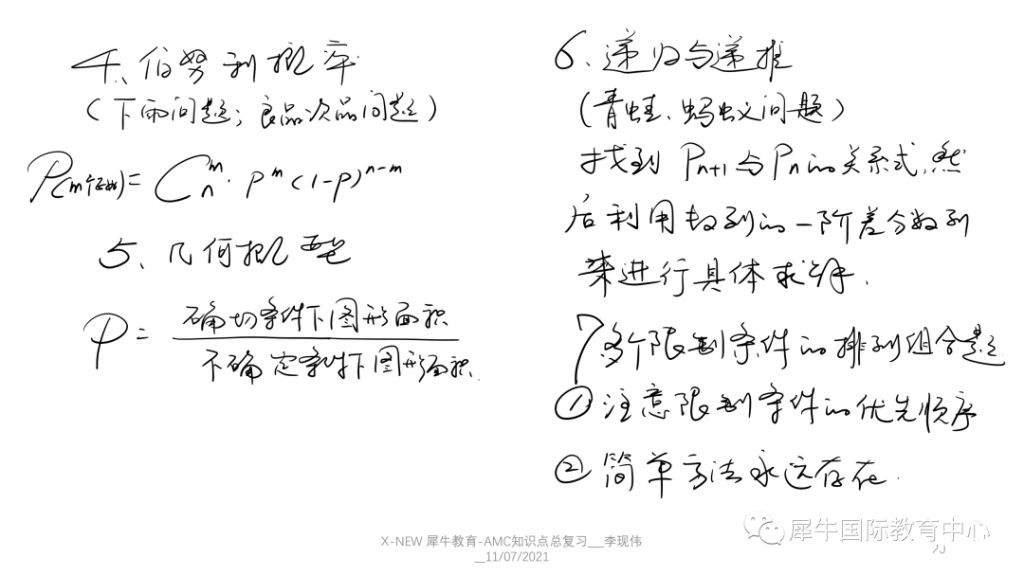 4、伯努利概率
(下雨问题；良品次品问题)
P(m个正好)= C_n^m · p^m (1-p)^{n-m}
5、几何概型
P = 确切条件下图形面积
不确定条件下图形面积.
6、递归与递推
(青蛙、蚂蚁问题)
找到 P_{n+1} 与 P_n 的关系式,然
后利用数列的一阶差分数列
来进行具体求解.
7 多个限制条件的排列组合题.
① 注意限制条件的优先顺序
② 简单方法永远存在.
X-NEW 犀牛教育-AMC知识点总复习__李现伟
__11/07/2021
犀牛国际教育中心